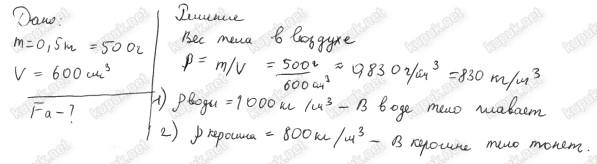 Дано:
m=0,5т = 500г
V = 600 см³
Fа-?
Решение
Вес тела в воздухе
ρ = m/V = 500г/600см³ ≈ 0,830 г/см³ = 830 кг/м³
1) ρ воды = 1000 кг/м³ – В воде тело плавает
2) ρ керосина = 800 кг/м³ – В керосине тело тонет.